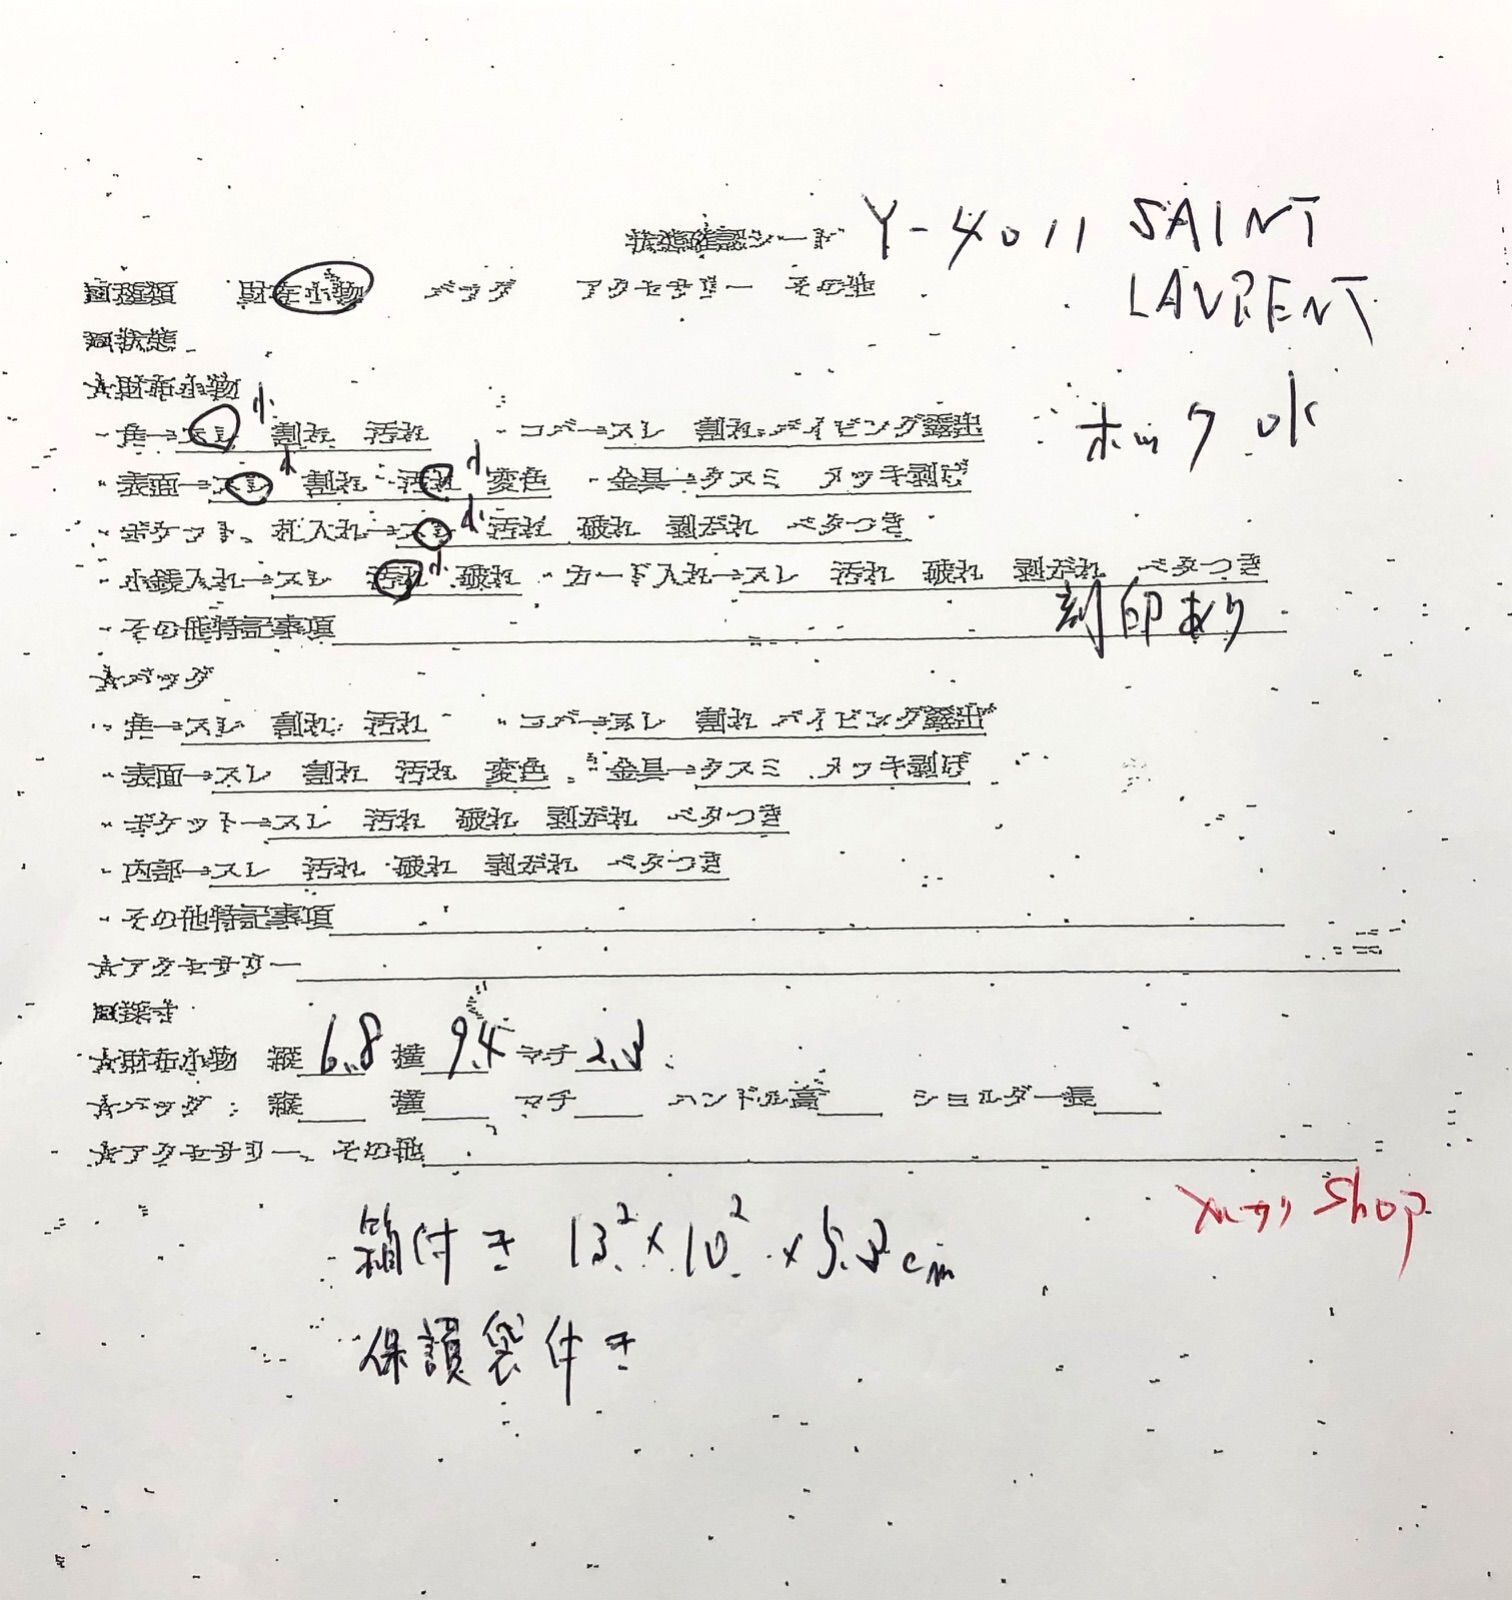 状態確認シート Y-4011 SAINT
LAURENT
種類 財布小物 バッグ アクセサリー その他
状態
☆財布小物
・角→スレ 小 割れ 汚れ ・コバ→スレ 割れ パイピング露出
ホック ok
・表面→スレ 小 割れ 汚れ 小 変色 ・金具→クスミ メッキ剥げ
・ポケット、札入れ→スレ 小 汚れ 破れ 剥がれ ベタつき
・小銭入れ→スレ 汚れ 小 破れ ・カード入れ→スレ 汚れ 破れ 剥がれ ベタつき
・その他特記事項 刻印あり
☆バッグ
・角→スレ 割れ 汚れ ・コバ→スレ 割れ パイピング露出
・表面→スレ 割れ 汚れ 変色 ・金具→クスミ メッキ剥げ
・ポケット→スレ 汚れ 破れ 剥がれ ベタつき
・内部→スレ 汚れ 破れ 剥がれ ベタつき
・その他特記事項
☆アクセサリー
採寸
☆財布小物 縦 6.8 横 9.4 マチ 2.3
☆バッグ 縦 横 マチ ハンドル高 ショルダー長
☆アクセサリー、その他
Shop
箱付き 13.2×10.2×5.3cm
袋付き